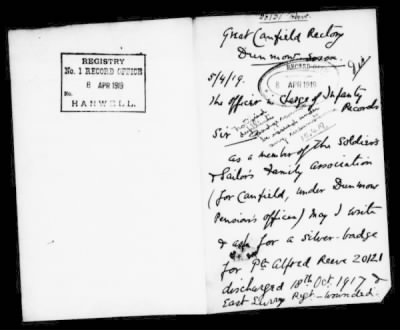 REGISTRY
No. 1 RECORD OFFICE
8 APR 1919
No.
HANWELL.
20121 Reeve
Great Canfield Rectory
Dunmow Essex
RECORD
8 APR 1919
5/4/19.
The officer i/c of Infantry
Records
Sir
as a member of the Soldiers
& Sailors Family Association
(for Canfield, under Dunmow
Pensions officer) May I write
& ask for a silver-badge
for Pte Alfred Reeve 20121
discharged 18th Oct. 1917 &
East Surrey Regt - wounded.